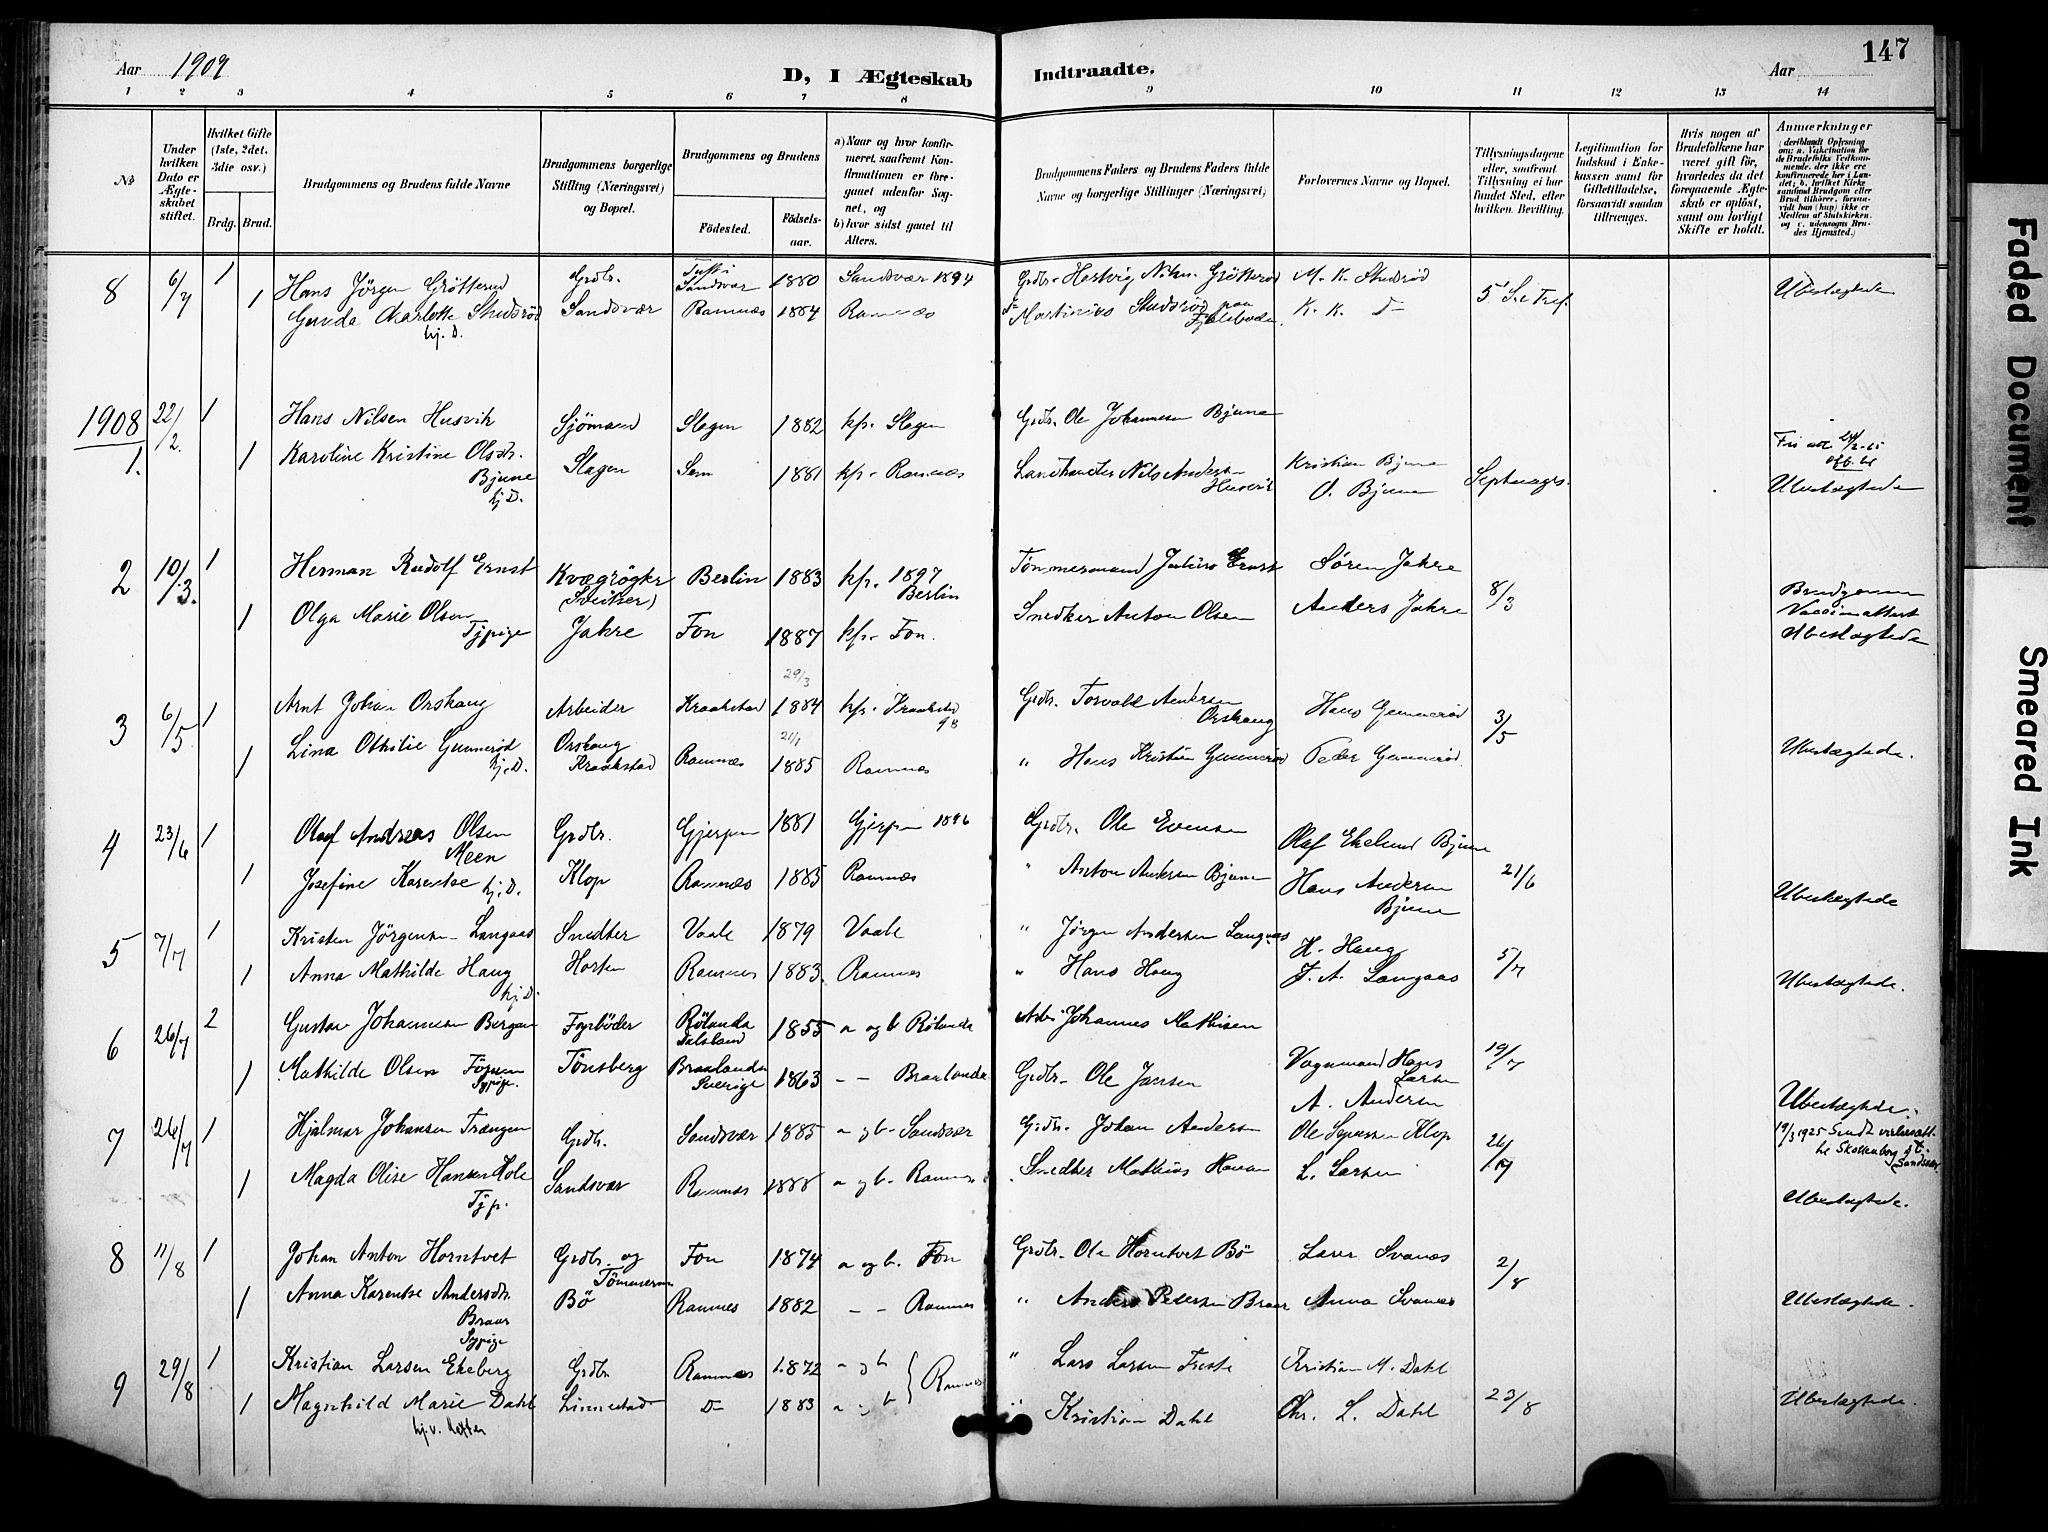 Aar 1909
D, I Ægteskab Indtraadte.
Aar
147
1 2 3 4 5 6 7 8 9 10 11 12 13 14
No
Under hvilken Dato er Ægteskabet stiftet.
Hvilket Gifte (1ste, 2det, 3die osv.)
Brdg. Brud.
Brudgommens og Brudens fulde Navne
Brudgommens borgerlige Stilling (Næringsvei) og Bopæl.
Brudgommens og Brudens
Fødested.
Fødselsaar.
a) Naar og hvor konfirmeret, saafremt Konfirmationen er foregaaet udenfor Sognet, og
b) hvor sidst gaaet til Alters.
Brudgommens Faders og Brudens Faders fulde Navne og borgerlige Stillinger (Næringsvei)
Forlovernes Navne og Bopæl.
Tillysningsdagene eller, saafremt Tillysning ei har fundet Sted, efter hvilken Bevilling.
Legitimation for Indskud i Enkekassen samt for Giftetilladelse, forsaavidt saadan tiltrænges.
Hvis nogen af Brudefolkene har været gift før, hvorledes da det foregaaende Ægteskab er opløst, samt om lovligt Skifte er holdt.
Anmærkninger
8 6/7 1 Hans Jörgen Grötterud Grdbr. Tuft i Sandsvær 1880 Sandsvær 1894 Grdbr. Hartvig Nilsen Grötterød M. K. Studsrød 5 S. e Tref. Ubeslægtede
1 Gunda Charlotte Studsrød Sandsvær Ramnæs 1884 Ramnæs Martinius Studsrød K. K. D
hj. D.
1908
1. 22/2 1 Hans Nilsen Husvik Sjömand Slagen 1882 kfr. Slagen Grdbr. Ole Johannesen Bjune
1 Karoline Kristine Olsdr. Slagen Sem 1881 kfr. Ramnæs Landhandler Nils Andersen Husvik Kristian Bjune Septuages. Ubeslægtede
Bjune O. Bjune
hj. D.
2 10/3. 1 Herman Rudolf Ernst Kvægrögter Berlin 1883 kfr. 1897 Berlin Tømmermand Julius Ernst Søren Jahre 8/3 Brudgommen
(Sveitser) Vaccinattest
1 Olga Marie Olsen Jahre Fon 1887 kfr. Fon. Snedker Anton Olsen Anders Jahre Ubeslægtede
Tjpige
3 6/5 1 Arnt Johan Orskaug Arbeider Kraakstad 29/3 1884 kfr. Kraakstad 98 Grdbr. Torvald Andersen Orskaug Hans Gunnerød 3/5
1 Lina Othilie Gunnerød Orskaug Kraakstad Ramnæs 21/1 1885 Ramnæs " Hans Kristian Gunnerød Peder Gunnerød. Ubeslægtede.
hj. D.
4 23/6 1 Olaf Andreas Olsen Meen Grdbr. Gjerpen 1881 Gjerpen 1896 Grdbr. Ole Evensen Olaf Ekelund Bjune
1 Josefine Karentse hj. D. Klop Ramnæs 1883 Ramnæs " Anton Andersen Bjune Hans Andersen Bjune 21/6 Ubeslægtede
5 7/7 1 Kristen Jörgensen Langaas Snedker Vaale 1879 Vaale " Jørgen Andersen Langaas H. Haug 5/7
1 Anna Mathilde Haug Horten Ramnes 1883. Ramnes " Hans Haug J. A. Langaas Ubeslægtede.
hj. D.
6 26/7 2 Gustav Johannesen Bergan Fyrböder Rölanda Dalsland 1855 a og b Rölanda Arb. Johannes Mathisen
1 Mathilde Olsen Tönsberg Braalanda Sverige 1863 - - Braalanda Grdbr. Ole Jansen Vognmand Hans Larsen 19/7
Sypige. A. Andersen Ubeslægtede.
7 26/7 1 Hjalmar Johansen Trængen Grdbr. Sandsvær 1885 a og b. Sandsvær Grdbr. Johan Andersen Klop 26/7 19/3 1925 Sendt
1 Magda Olise Hansen Hole Sandsvær Ramnæs a og b. Ramnes Snedker Mathias Hansen L. Larsen
Tjp. Ubeslægtede.
8 11/8 1 Johan Anton Horntvet Grdbr. og Tömmermand Fon 1874 a og b. Fon Grdbr. Ole Horntvet Bö Svanæs 2/8
1 Anna Karentse Andersdr. Bö Ramnes 1882 - - Ramnes " Anders Petersen Braar Anna Svanæs Ubeslægtede.
Braar
Sypige
9 29/8 1 Kristian Larsen Ekeberg Grdbr Ramnæs 1872 a og b Ramnes " Lars Larsen Kristian M. Dahl
1 Magnhild Marie Dahl Linnestad D 1883 a og b " Kristian Dahl Chr. L. Dahl 23/8 Ubeslægtede.
hj. v. datter
Faded Document
Smeared Ink